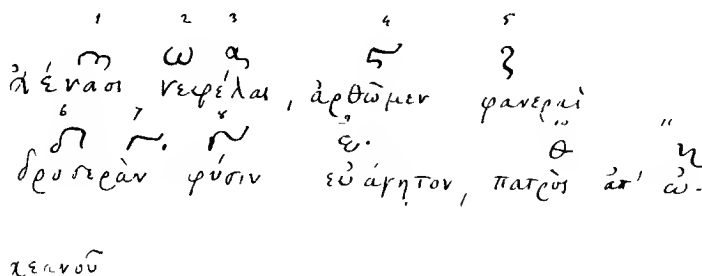 1 2 3 4 5
ω α
ἀέναοι νεφέλαι, ἀρθῶμεν φανεραὶ
6 7 8 9 10 11
θ
δροσερὰν φύσιν εὐάγητον, πατρὸς ἀπ' ὠ-
κεανοῦ